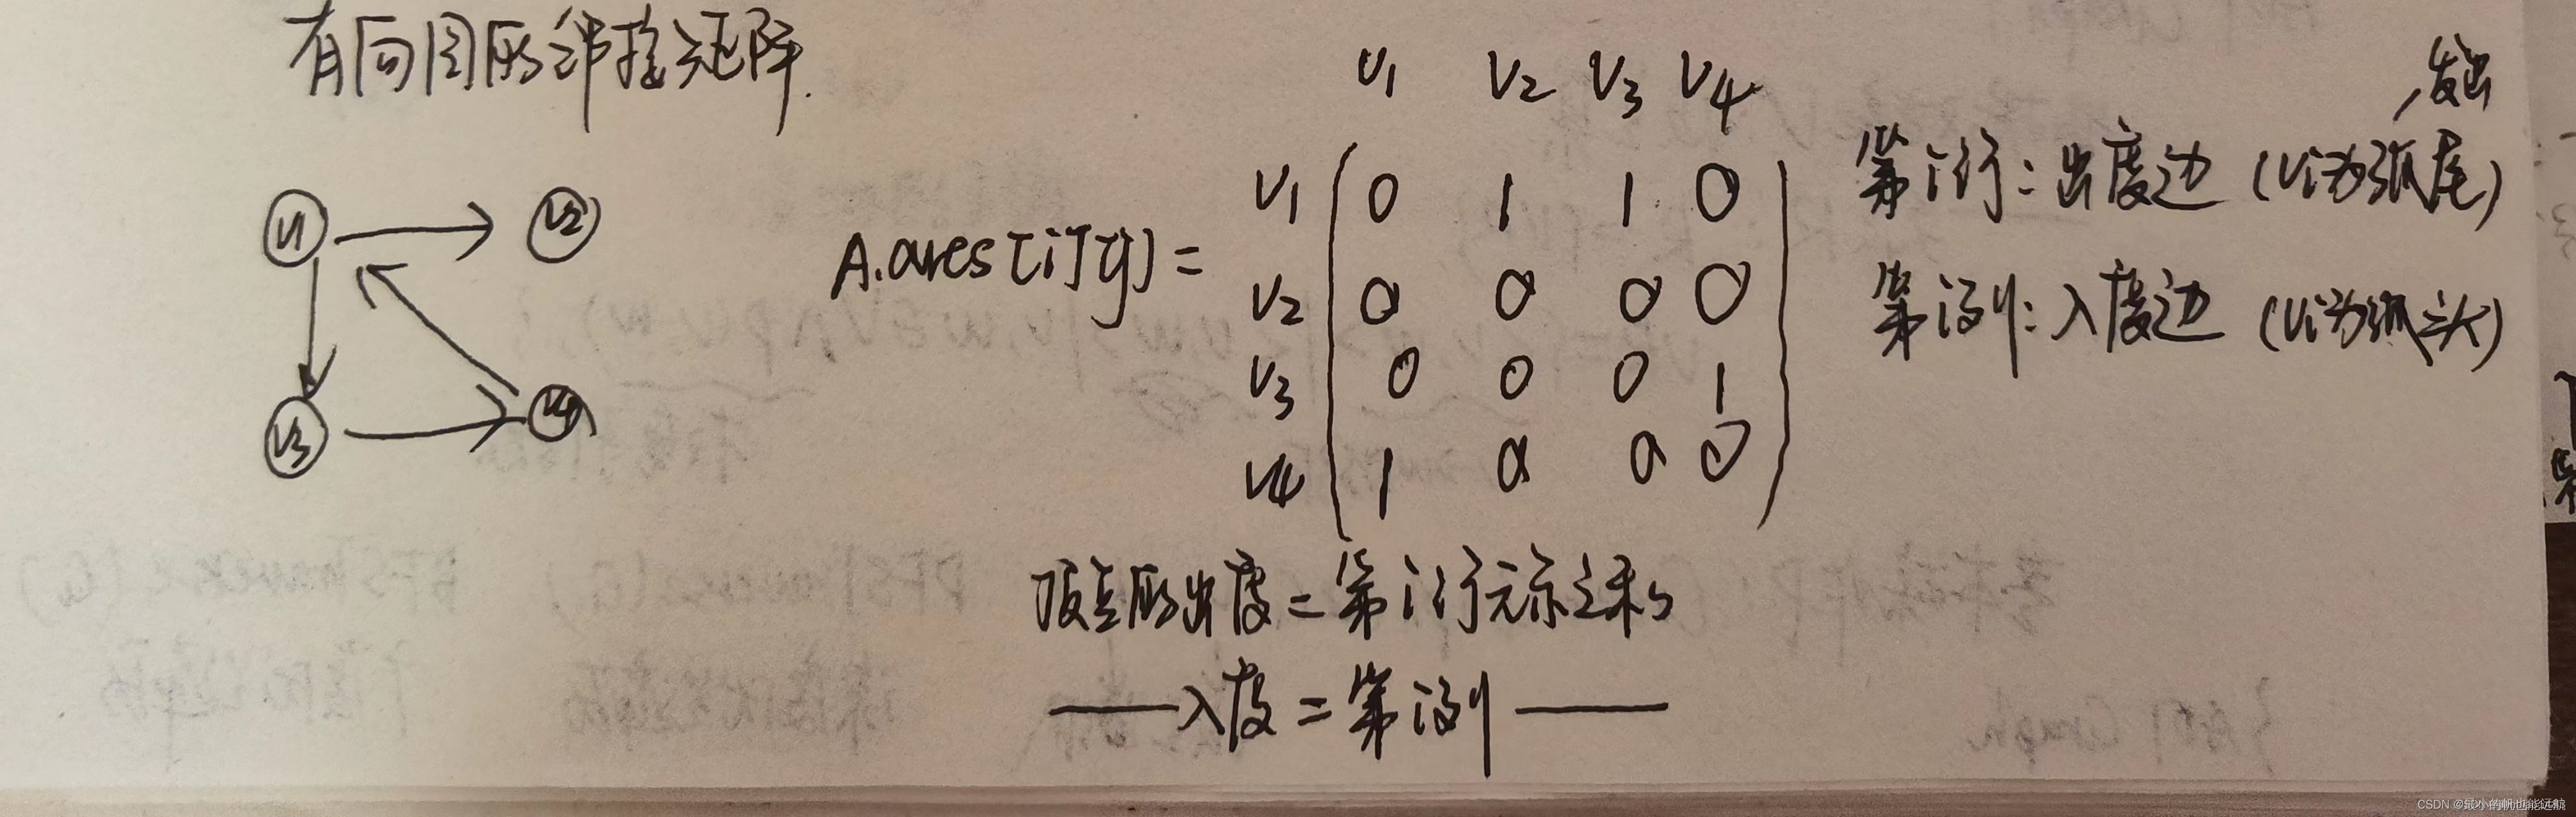 有向图的邻接矩阵.
V1 V2 V3 V4
发出
V1 0 1 1 0
第i行: 出度边 (Vi为弧尾)
V1 V2
A.arcs[i][j] =
V2 0 0 0 0
第i列: 入度边 (Vi为弧头)
V3 0 0 0 1
V3 V4
V4 1 0 0 0
顶点的出度 = 第i行元素之和
——入度 = 第i列——
CSDN @最小的帆也能远航